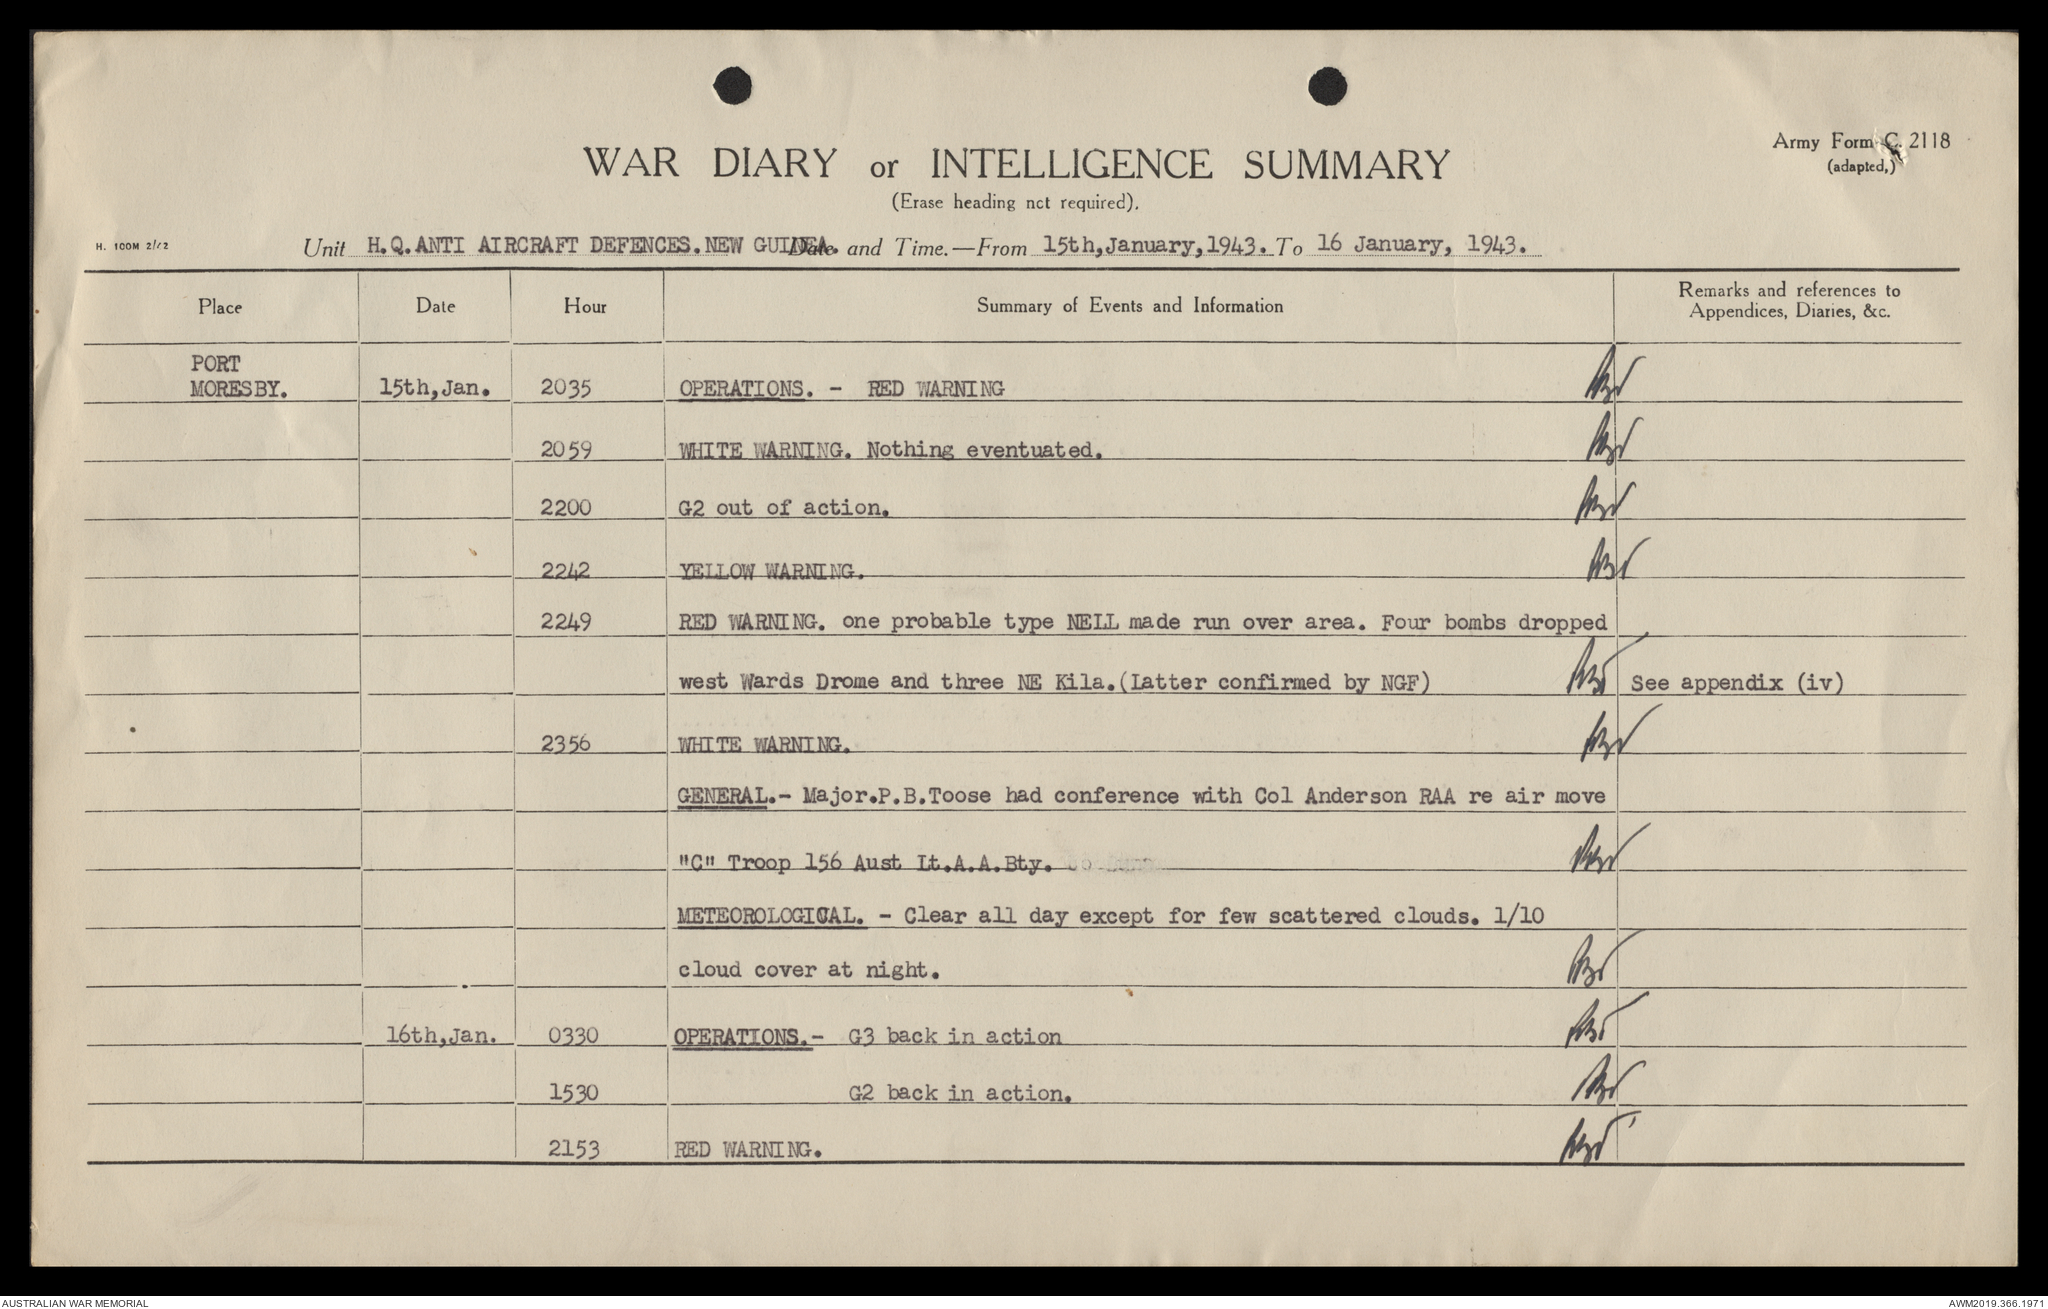 Army Form C. 2118
(adapted,)
WAR DIARY or INTELLIGENCE SUMMARY
(Erase heading not required).
H. 100M 2/42
Unit H.Q.ANTI AIRCRAFT DEFENCES.NEW GUINEA. Date and Time.—From 15th,January,1943. To 16 January, 1943.
Place Date Hour Summary of Events and Information Remarks and references to
Appendices, Diaries, &c.
PORT
MORESBY. 15th,Jan. 2035 OPERATIONS. - RED WARNING
2059 WHITE WARNING. Nothing eventuated.
2200 G2 out of action.
2242 YELLOW WARNING.
2249 RED WARNING. one probable type NELL made run over area. Four bombs dropped
west Wards Drome and three NE Kila.(Latter confirmed by NGF) See appendix (iv)
2356 WHITE WARNING.
GENERAL.- Major.P.B.Toose had conference with Col Anderson RAA re air move
"C" Troop 156 Aust Lt.A.A.Bty.
METEOROLOGICAL. - Clear all day except for few scattered clouds. 1/10
cloud cover at night.
16th,Jan. 0330 OPERATIONS.- G3 back in action
1530 G2 back in action.
2153 RED WARNING.
AUSTRALIAN WAR MEMORIAL AWM2019.366.1971